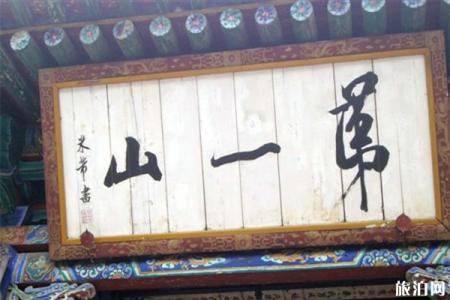 第一山
米芾书
旅泊网